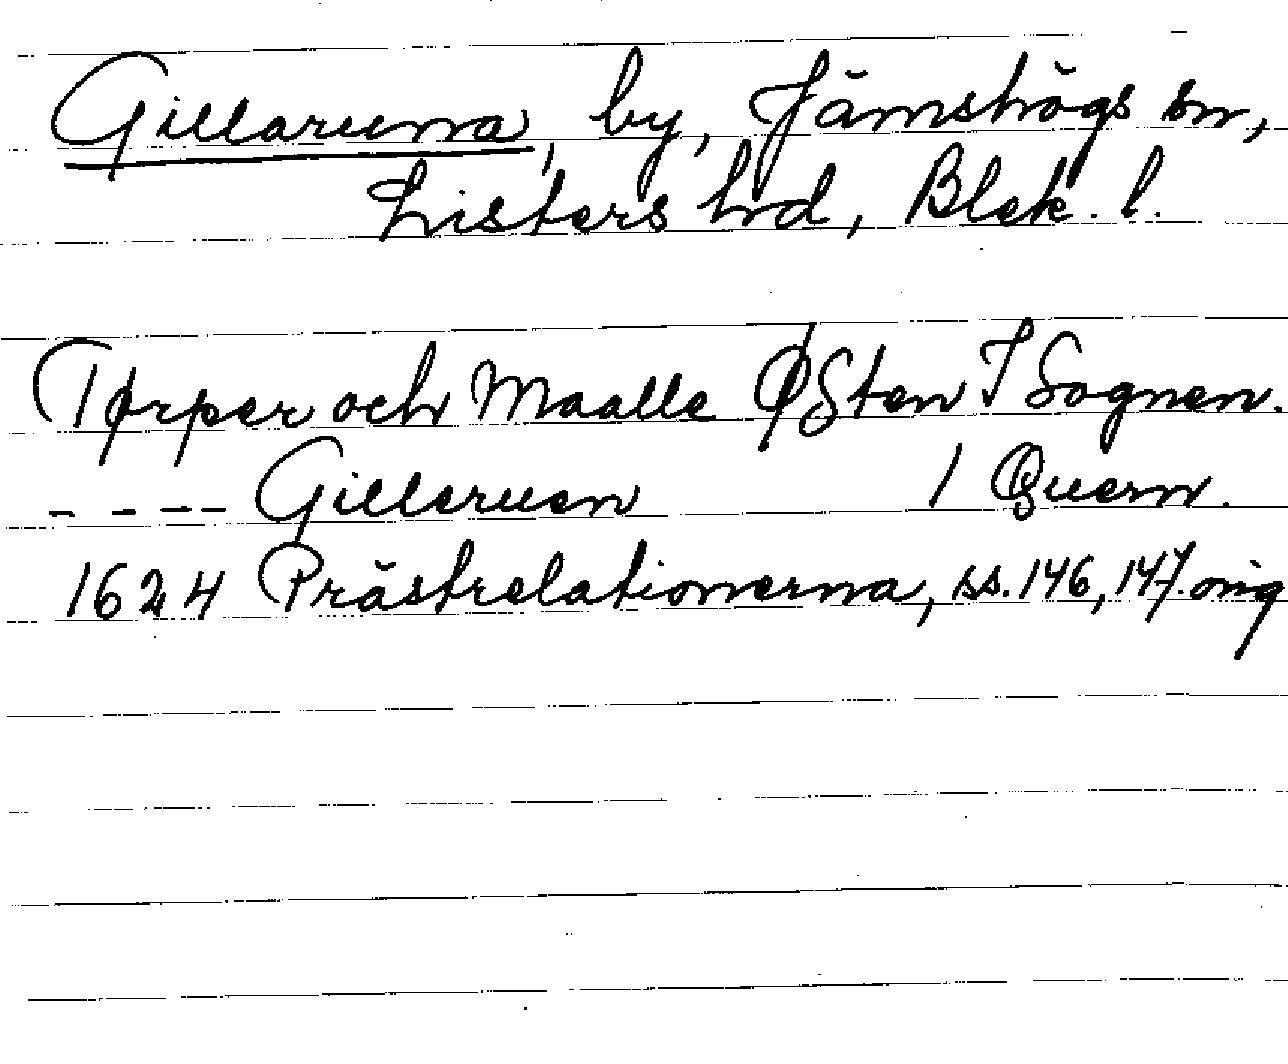 Gillaruna, by, Jämshögs sn,
Listers hrd, Blek. l.
Tørper och Maalle ØSten I Sognen.
- - -- Gilleruen 1 Quern.
1624 Prästrelationerna, ss. 146, 147. orig